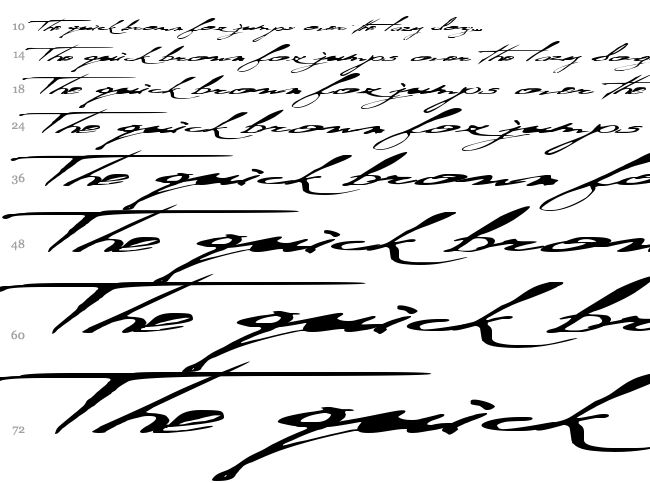 10 The quick brown fox jumps over the lazy dog...
14 The quick brown fox jumps over the lazy dog
18 The quick brown fox jumps over the
24 The quick brown fox jumps
36 The quick brown fo
48 The quick brown
60 The quick br
72 The quick